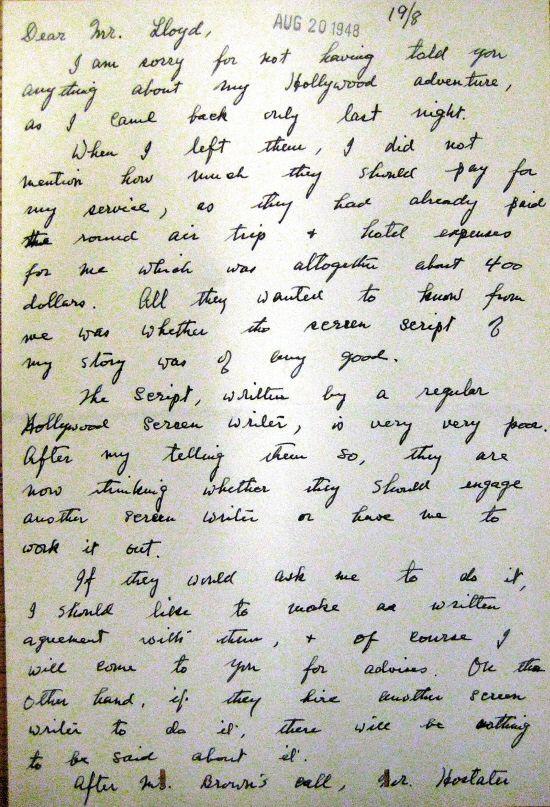 19/8
AUG 20 1948
Dear Mr. Lloyd,
I am sorry for not having told you
anything about my Hollywood adventure,
as I came back only last night.
When I left them, I did not
mention how much they should pay for
my service, as they had already paid
the round air trip + hotel expenses
for me which was altogether about 400
dollars. All they wanted to know from
me was whether the screen script of
my story was of any good.
The script, written by a regular
Hollywood screen writer, is very very poor.
After my telling them so, they are
now thinking whether they should engage
another screen writer or have me to
work it out.
If they would ask me to do it,
I should like to make a written
agreement with them, + of course I
will come to you for advises. On the
other hand, if they hire another screen
writer to do it, there will be nothing
to be said about it.
After Ms. Brown's call, Mr. Hostater